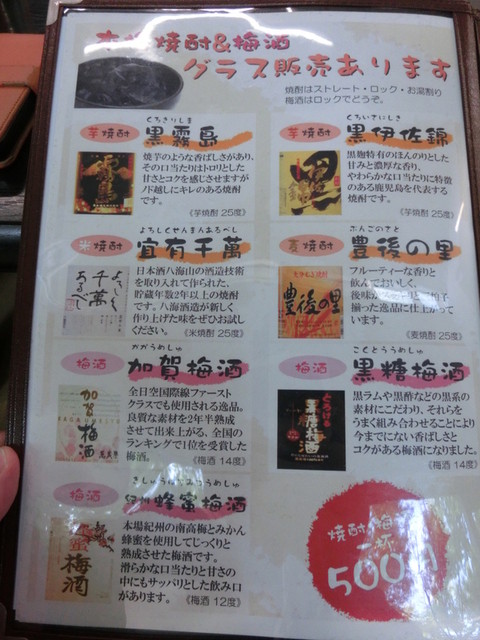 焼酎&梅酒
グラス販売あります
焼酎はストレート・ロック・お湯割り
梅酒はロックでどうぞ。
くろきりしま
芋焼酎 黒霧島
焼芋のような香ばしさがあり、
その口当たりはトロリとした
甘さとコクを感じさせますが
ノド越しにキレのある焼酎
です。
《芋焼酎 25度》
くろいさにしき
芋焼酎 黒伊佐錦
黒麹特有のほんのりとした
甘みと濃厚な香り、
やわらかな口当たりに特徴
のある鹿児島を代表する
焼酎です。
《芋焼酎 25度》
よろしくせんまんあるべし
米焼酎 宜有千萬
よろしく
千萬
あるべし
日本酒八海山の酒造技術
を取り入れて作られた、
貯蔵年数2年以上の焼酎
です。八海酒造が新しく
作り上げた味をぜひお試し
ください。
《米焼酎 25度》
ぶんごのさと
麦焼酎 豊後の里
豊後の里
フルーティーな香りと
飲んでおいしく、
揃った逸品に仕上がって
います。
《麦焼酎 25度》
かがうめしゅ
梅酒 加賀梅酒
加賀
梅酒
全日空国際線ファースト
クラスでも使用される逸品。
良質な素材を2年半熟成
させて出来上がる、全国の
ランキングで1位を受賞した
梅酒。
《梅酒 14度》
こくとううめしゅ
梅酒 黒糖梅酒
とろける
黒糖梅酒
黒ラムや黒酢などの黒系の
素材にこだわり、それらを
うまく組み合わせることにより
今までにない香ばしさと
コクがある梅酒になりました。
《梅酒 14度》
梅酒 紀州蜂蜜梅酒
梅酒
本場紀州の南高梅とみかん
蜂蜜を使用してじっくりと
熟成させた梅酒です。
滑らかな口当たりと甘さの
中にもサッパリとした飲み口
があります。
《梅酒 12度》
焼酎・梅
一杯
500